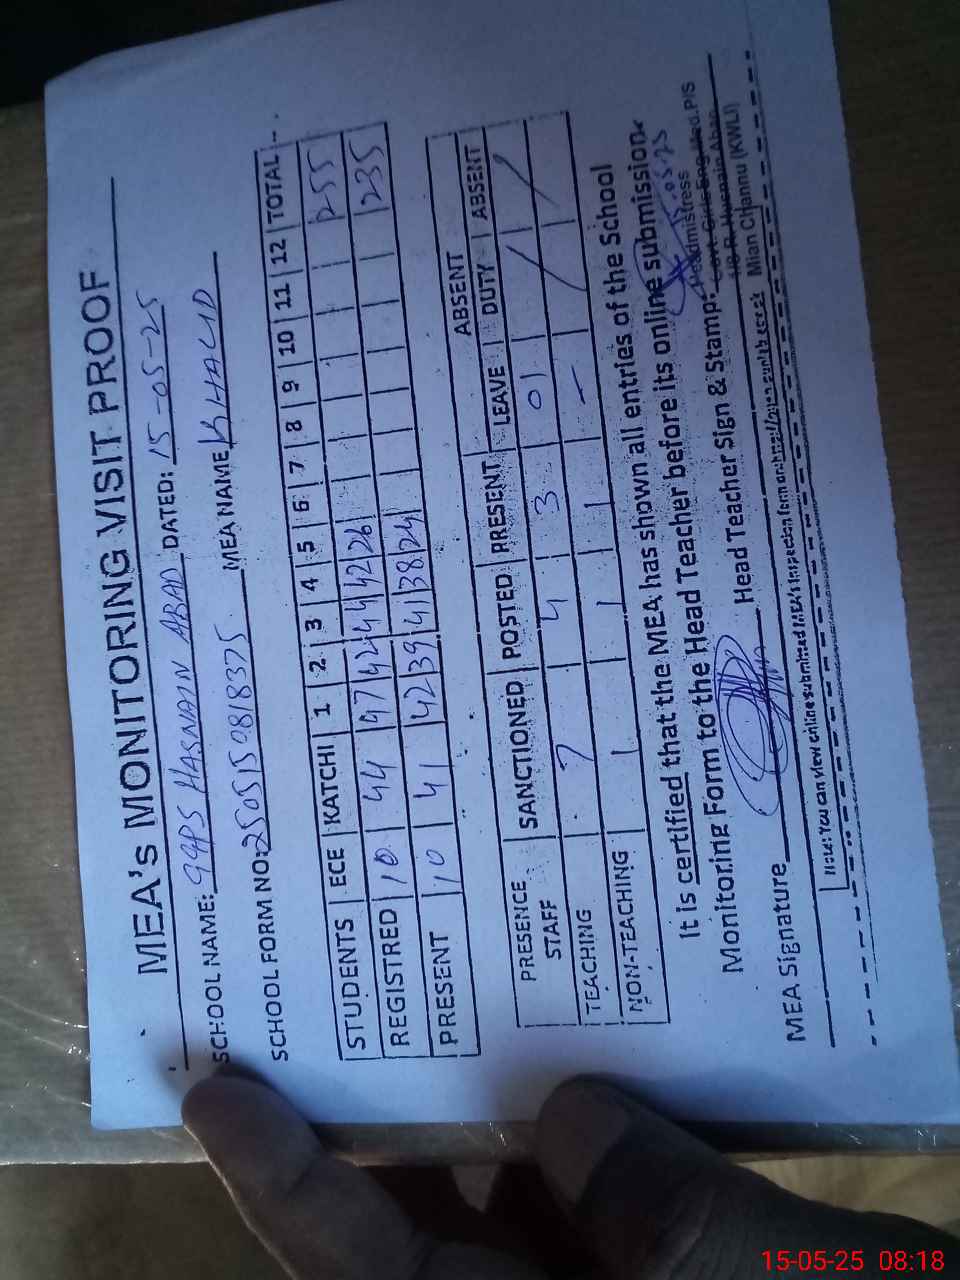 MEA's MONITORING VISIT PROOF
SCHOOL NAME: GGPS HASNAIN ABAD DATED: 15-05-25
SCHOOL FORM NO: 2505150818375 MEA NAME KHALID
STUDENTS ECE KATCHI 1 2 3 4 5 6 7 8 9 10 11 12 TOTAL
REGISTRED 10 44 47 42 44 42 26 255
PRESENT 10 41 42 39 41 38 24 235
PRESENCE STAFF SANCTIONED POSTED PRESENT LEAVE ABSENT DUTY ABSENT
TEACHING 7 4 3 01 /
NON-TEACHING 1 1 1 - / /
It is certified that the MEA has shown all entries of the School
Monitoring Form to the Head Teacher before its online submission.
15.05.25
MEA Signature Head Teacher Sign & Stamp:
Headmistress
Govt. Girls Eng. Med. P/S
Husnain Abad
Mian Channu (KWL)
Note: You can view online submitted MEA's Inspection form on
15-05-25 08:18